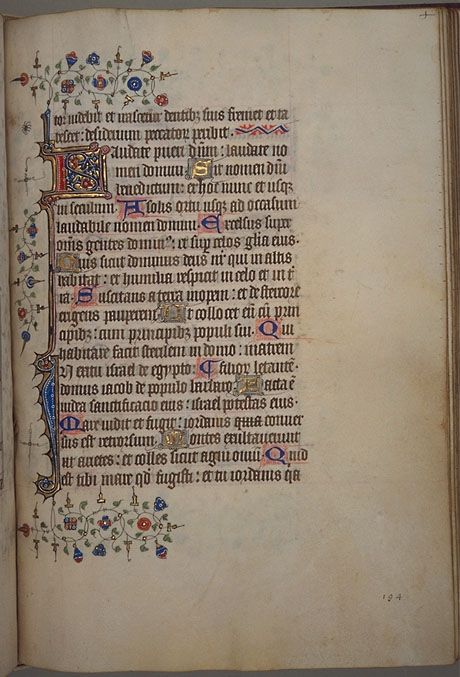 tor videbit et irascetur dentibꝫ suis fremet et ta
bescet: desiderium peccatorum peribit.
Laudate pueri dnm: laudate no
men domini. Sit nomen dni
benedictum: ex hoc nunc et usqꝫ
in seculum. A solis ortu usqꝫ ad occasum
laudabile nomen domini. Excelsus super
omnes gentes dominꝰ: et sup celos glia eius.
Quis sicut dominus deus nr qui in altis
habitat: et humilia respicit in celo et in t
ra. Suscitans a terra inopem: et de stercore
erigens pauperem. Ut collocet eu cu prin
cipibꝫ: cum principibꝫ populi sui. Qui
habitare facit sterilem in domo: matrem
In exitu israel de egypto:
domus iacob de populo barbaro. Facta e
iudea sanctificacio eius: israel potestas eius.
Mare vidit et fugit: iordanis conver
sus est retrorsum. Montes exultaverunt
ut arietes: et colles sicut agni oviu. Quid
est tibi mare qd fugisti: et tu iordanis qa
194